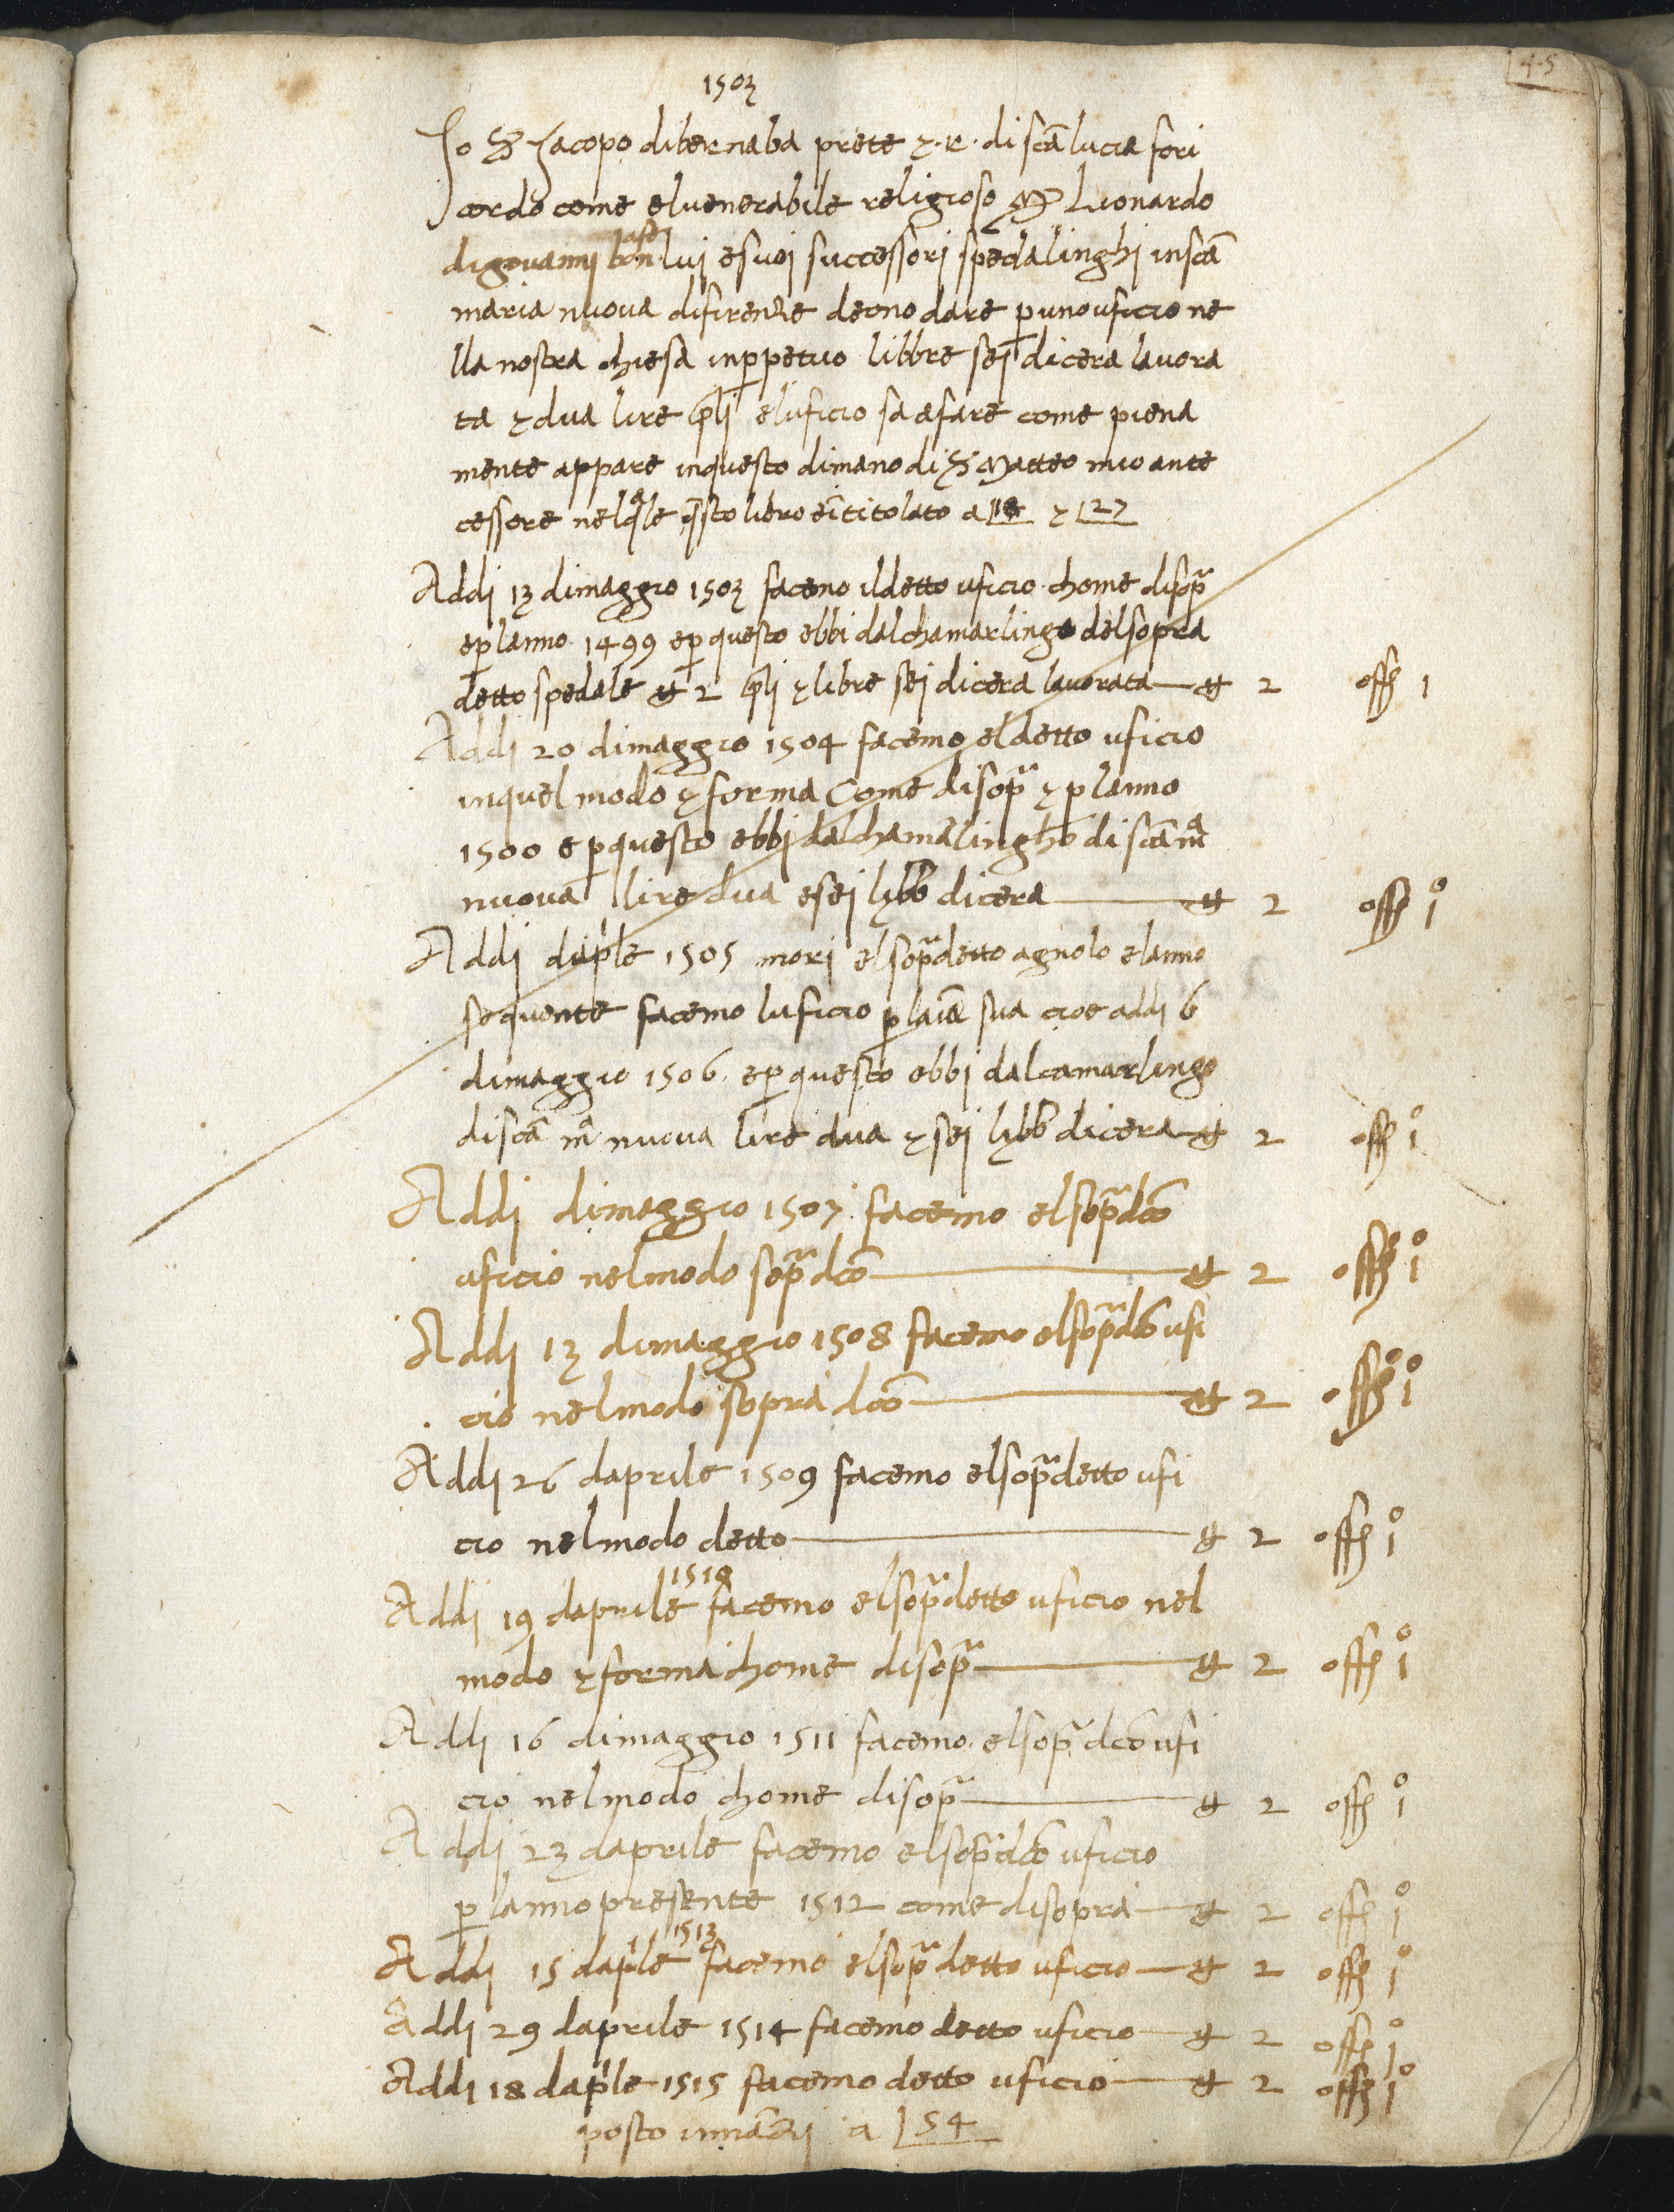 45
1503
Jo S Jacopo dibernaba prete z. R. di scā lucia fo ri
cordo come eluenerabile religioso M Lionardo
digiovannj lui esuoi successorj spedalinghi inscā
maria nuova difirenze deono dare p uno uficio ne
lla nostra chiesa inppetuo libbre sej dicera lavora
ta z dua lire eluficio sa afare come piena
mente appare inquesto dimano di S Matteo mio ante
cessore nelqle qsto libro eītitolato a z 27
Addj 13 dimaggio 1503 facemo ildetto uficio chome disopa
eplanno 1499 epquesto ebbi dalchamarlingo delsopra
detto spedale 2 z libre sej dicera lavorata 2 1
Addj 20 dimaggio 1504 facemo eldetto uficio
inquel modo z forma Come disopa z planno
1500 e pquesto ebbj dalchamalingho di scā ma
nuova lire dua esej lybb dicera 2 1
Addj daple 1505 morj elsopadetto agnolo elanno
sequente facemo luficio p laīa sua cioe addj 6
dimaggio 1506 epquesto ebbj dalcamarlingo
discā ma nuova lire dua z sej lybb dicera 2 1
Addj dimaggio 1507 facemo elsopadcō
uficio nelmodo sopadcō 2 1
Addj 13 dimaggio 1508 facemo elsopadcō ufi
cio nelmodo sopra dcō 2 1
Addj 26 daprile 1509 facemo elsopadetto ufi
cio nelmodo detto 2 1
1510
Addj 19 daprile facemo elsopadetto uficio nel
modo z forma chome disopa 2 1
Addj 16 dimaggio 1511 facemo elsopa dcō ufi
cio nelmodo chome disopa 2 1
Addj 23 daprile facemo elsopadcō uficio
p lanno presente 1512 come disopra 2 1
1513
Addj 15 daple facemo elsopa detto uficio 2 1
Addj 29 daprile 1514 facemo detto uficio 2 1
Addj 18 daple 1515 facemo detto uficio 2 1
posto innāzi a 54